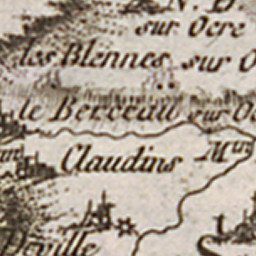 N. D
sur Ocre
les Blennes sur O
le Berceau sur Oc
Claudins Min
Deville